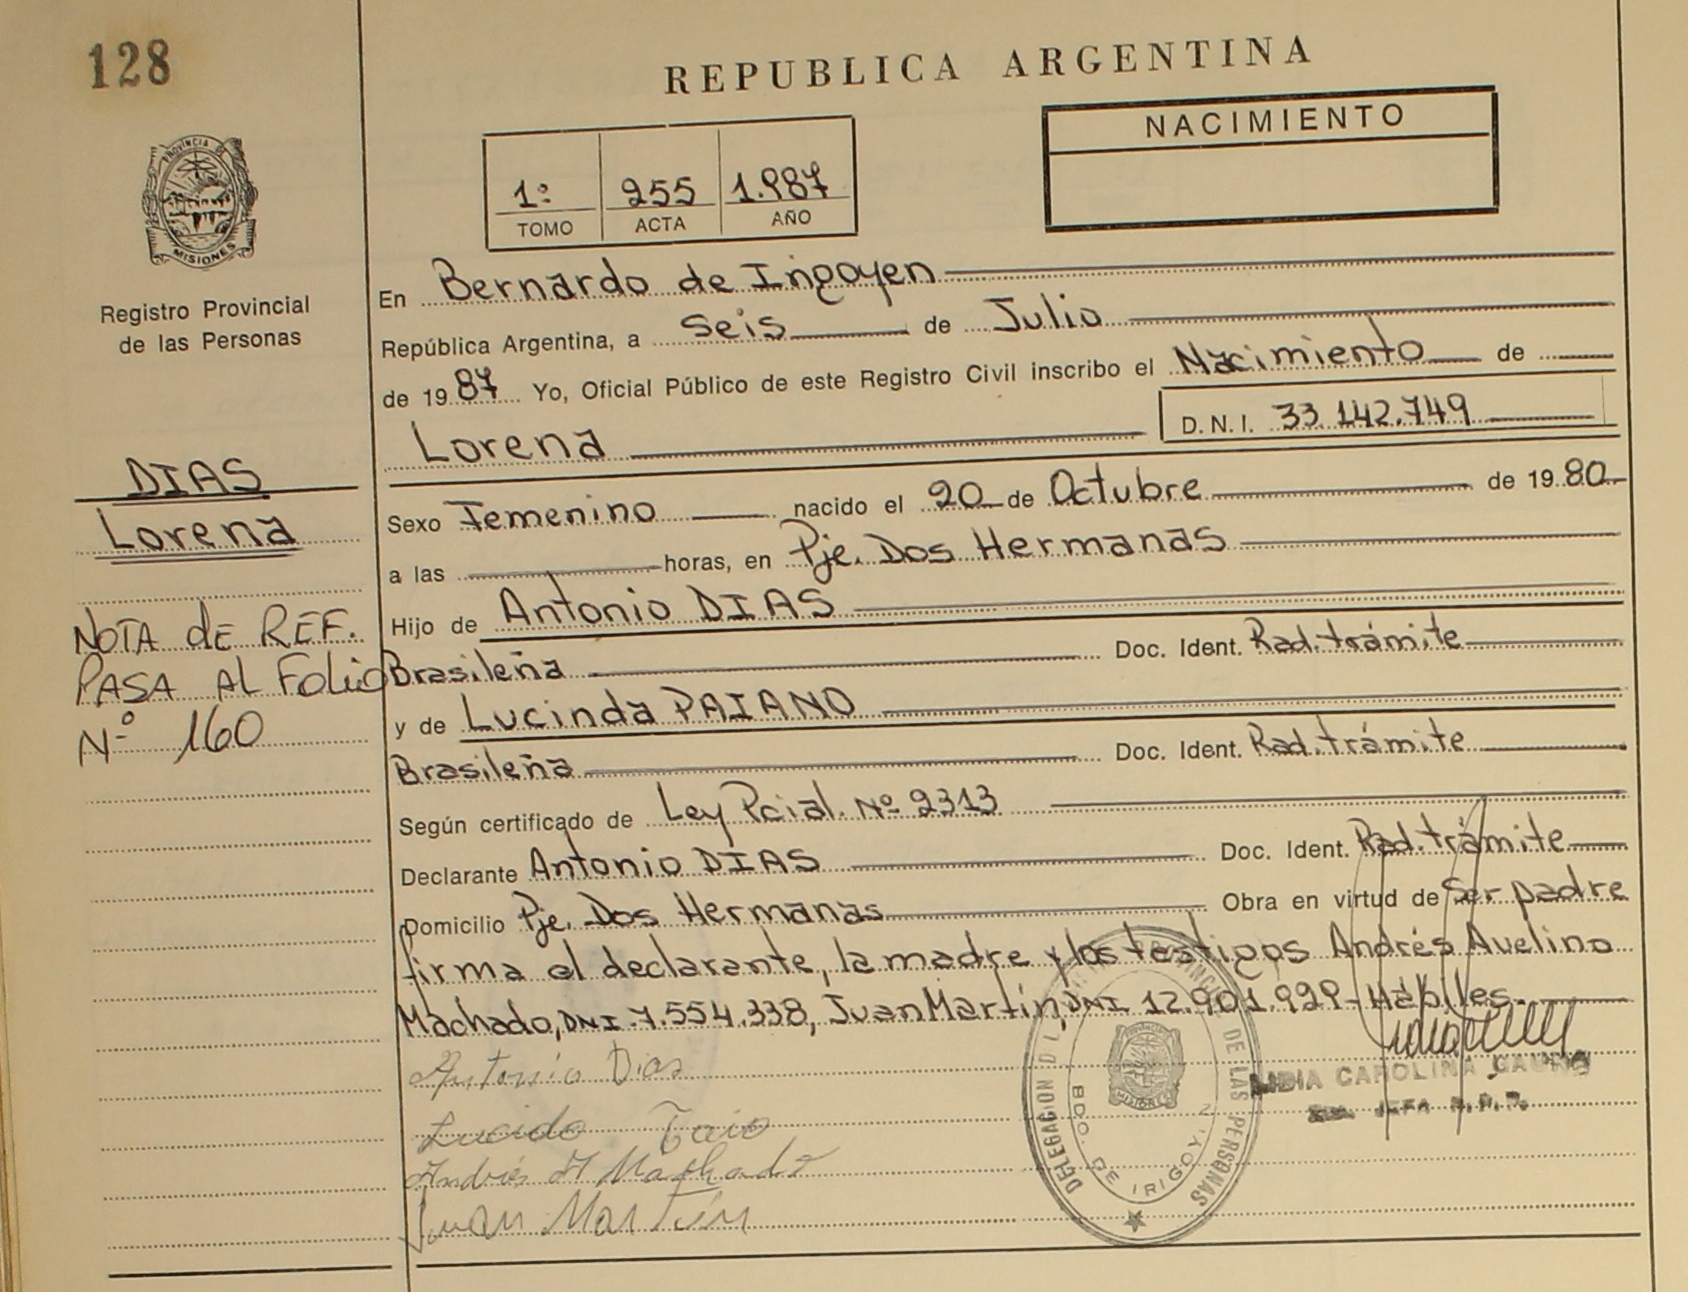 128
REPUBLICA ARGENTINA
NACIMIENTO
1º 255 1.987
TOMO ACTA AÑO
PROVINCIA DE
MISIONES
Registro Provincial
de las Personas
En Bernardo de Irigoyen
República Argentina, a Seis de Julio
de 1987 Yo, Oficial Público de este Registro Civil inscribo el Nacimiento de
Lorena D.N.I. 33.142.749
DIAS
Lorena
Sexo Femenino nacido el 20 de Octubre de 1980
a las horas, en Pje. Dos Hermanas
Hijo de Antonio DIAS
NOTA de REF.
PASA AL FOLIO
Nº 160
Brasileña Doc. Ident. Rad. trámite
y de Lucinda PAIANO
Brasileña Doc. Ident. Rad. trámite
Según certificado de Ley Pcial. Nº 2313
Declarante Antonio DIAS Doc. Ident. Rad. trámite
Domicilio Pje. Dos Hermanas Obra en virtud de Ser padre
firma el declarante, la madre y los testigos Andrés Avelino
Machado, DNI. 7.554.338, Juan Martín, DNI 12.901.929- Hábiles.
Antonio Dias
Andrés A Machado
Juan Martín
LIDIA CAROLINA
DELEGACION DE LAS PERSONAS
BDO. DE IRIGOY.
MISIONES